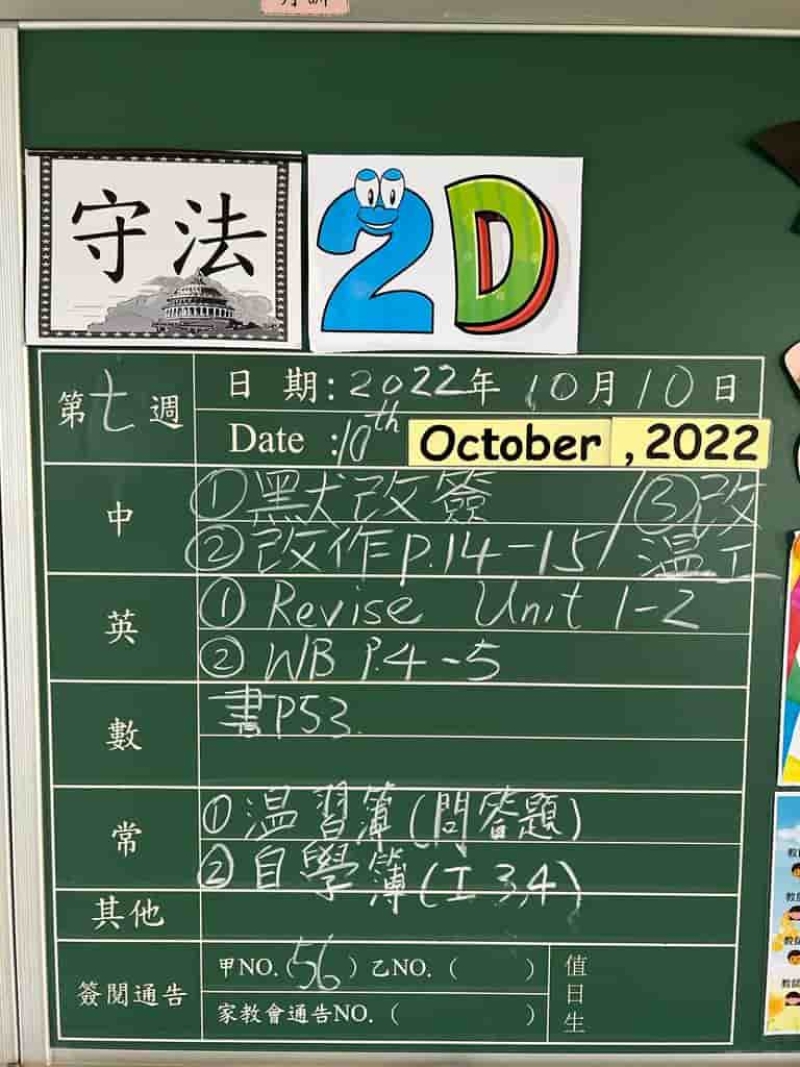 守法
2D
第七週
日 期:2022年 10月10日
Date :10th October ,2022
中
①默改簽 /③改
②改作p.14-15/ 温工
英
① Revise Unit 1-2
② WB P.4-5
數
書P53.
常
①温習簿(問答題)
②自學簿(工3,4)
其他
簽閱通告
甲NO.(56)乙NO.( )
家教會通告NO.( )
值日生